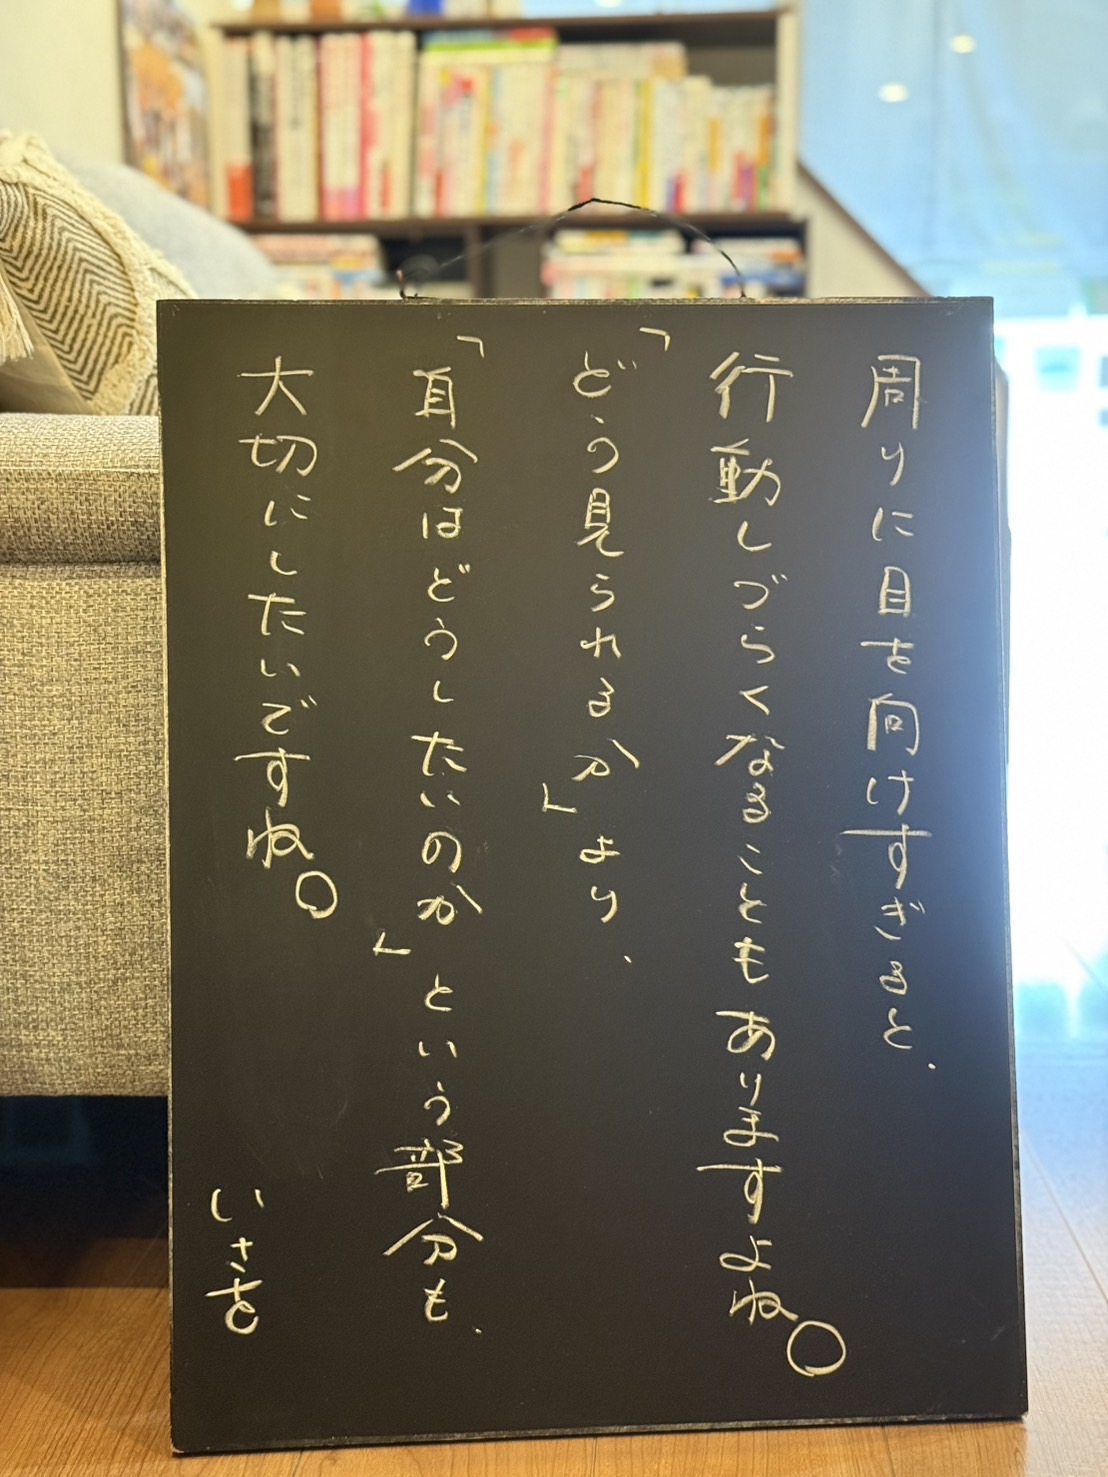 周りに目を向けすぎると、
行動しづらくなることもありますよね。
「どう見られるか」より、
「自分はどうしたいのか」という部分も、
大切にしたいですね。
いさを